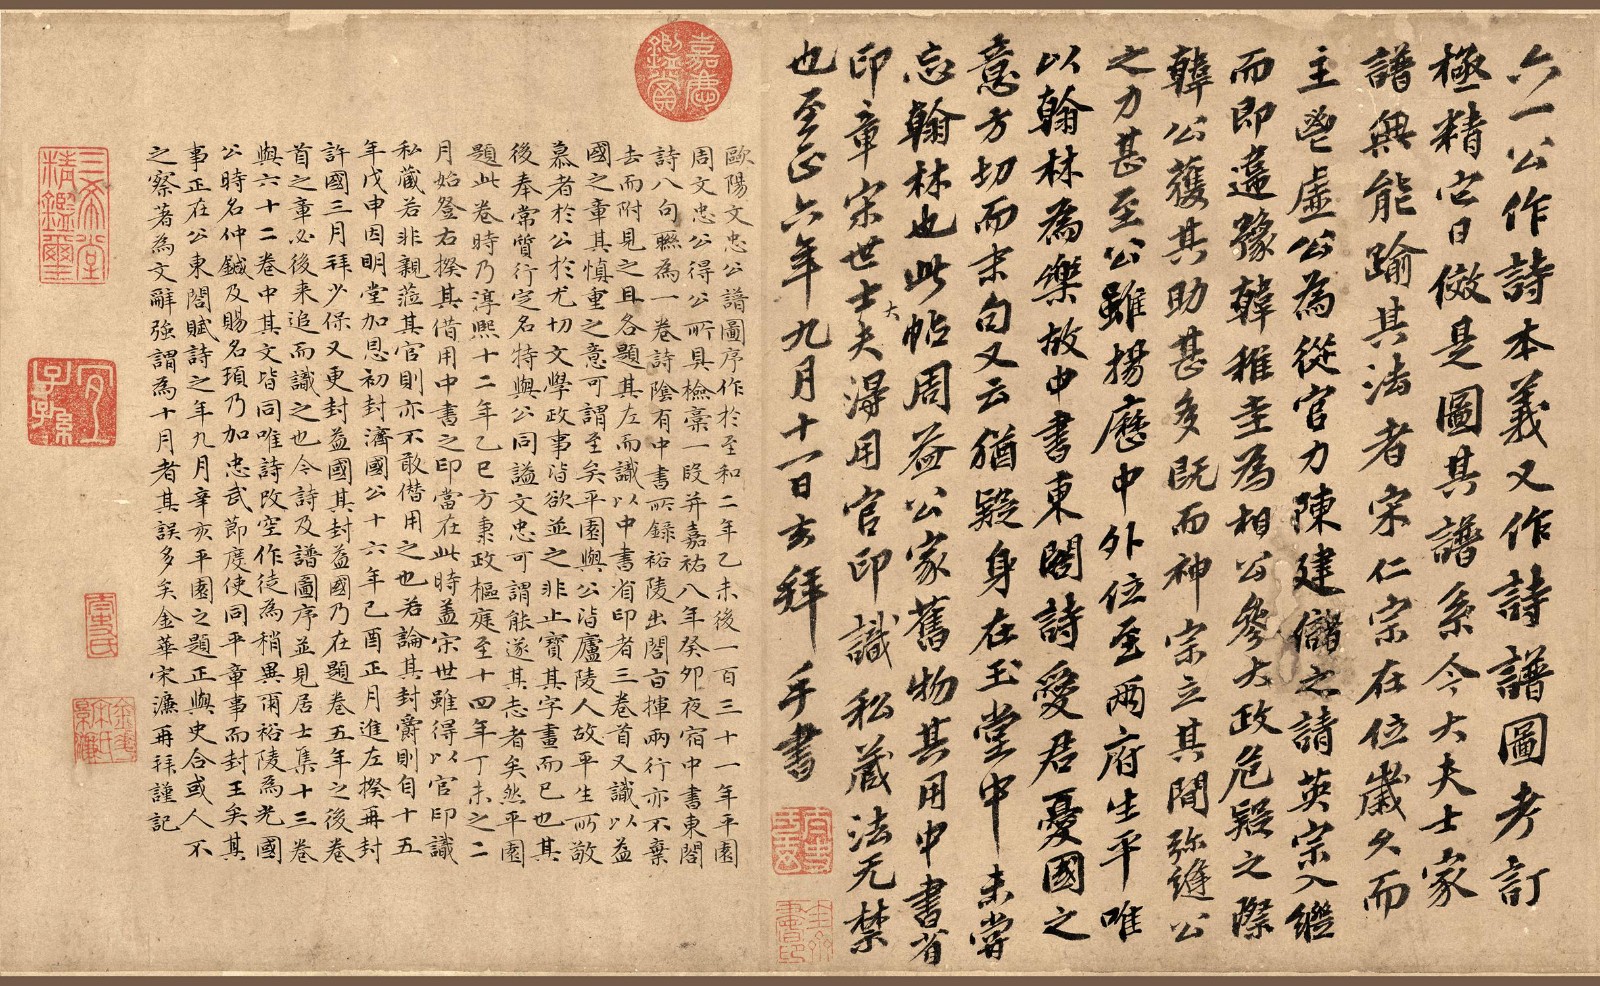 六一公作詩本義又作詩譜圖考訂
極精它日倣是圖其譜系今大夫士家
譜無能踰其法者宋仁宗在位歲久而
主鬯虛公為從官力陳建儲之請英宗入繼
而即違豫韓稚圭為相公參大政危疑之際
韓公獲其助甚多既而神宗立其間弥縫公
之力甚至公雖揚歷中外位至兩府生平唯
以翰林為樂故中書東閣詩愛君憂國之
意方切而末句又云猶疑身在玉堂中未嘗
忘翰林也此帖周益公家舊物其用中書省
印章宋世士大夫得用官印識私藏法无禁
也至正六年九月十一日玄拜手書
歐陽文忠公譜圖序作於至和二年乙未後一百三十一年平園
周文忠公得公所具檢稾一段并嘉祐八年癸卯夜宿中書東閣
詩八句聯為一卷詩陰有中書所録裕陵出閣百揮兩行亦不棄
去而附見之且各題其左而識以中書省印者三卷首又識以益
國之章其慎重之意可謂至矣平園與公皆廬陵人故平生所敬
慕者於公於尤切文學政事皆欲並之非止寶其字畫而已也其
後奉常質行定名特與公同謚文忠可謂能遂其志者矣然平園
題此卷時乃淳熙十二年乙巳方秉政樞庭至十四年丁未之二
月始登右揆其借用中書之印當在此時蓋宋世雖得以官印識
私藏若非親蒞其官則亦不敢僭用之也若論其封爵則自十五
年戊申因明堂加恩初封濟國公十六年己酉正月進左揆再封
許國三月拜少保又更封益國其封益國乃在題卷五年之後卷
首之章必後来追而識之也今詩及譜圖序並見居士集十三卷
與六十二卷中其文皆同唯詩改空作徒為稍異爾裕陵為光國
公時名仲鍼及賜名頊乃加忠武節度使同平章事而封王矣其
事正在公東閣賦詩之年九月辛亥平園之題正與史合或人不
之察著為文辭強謂為十月者其誤多矣金華宋濂再拜謹記
嘉慶鑑賞
三希堂精鑑璽
宜子孫